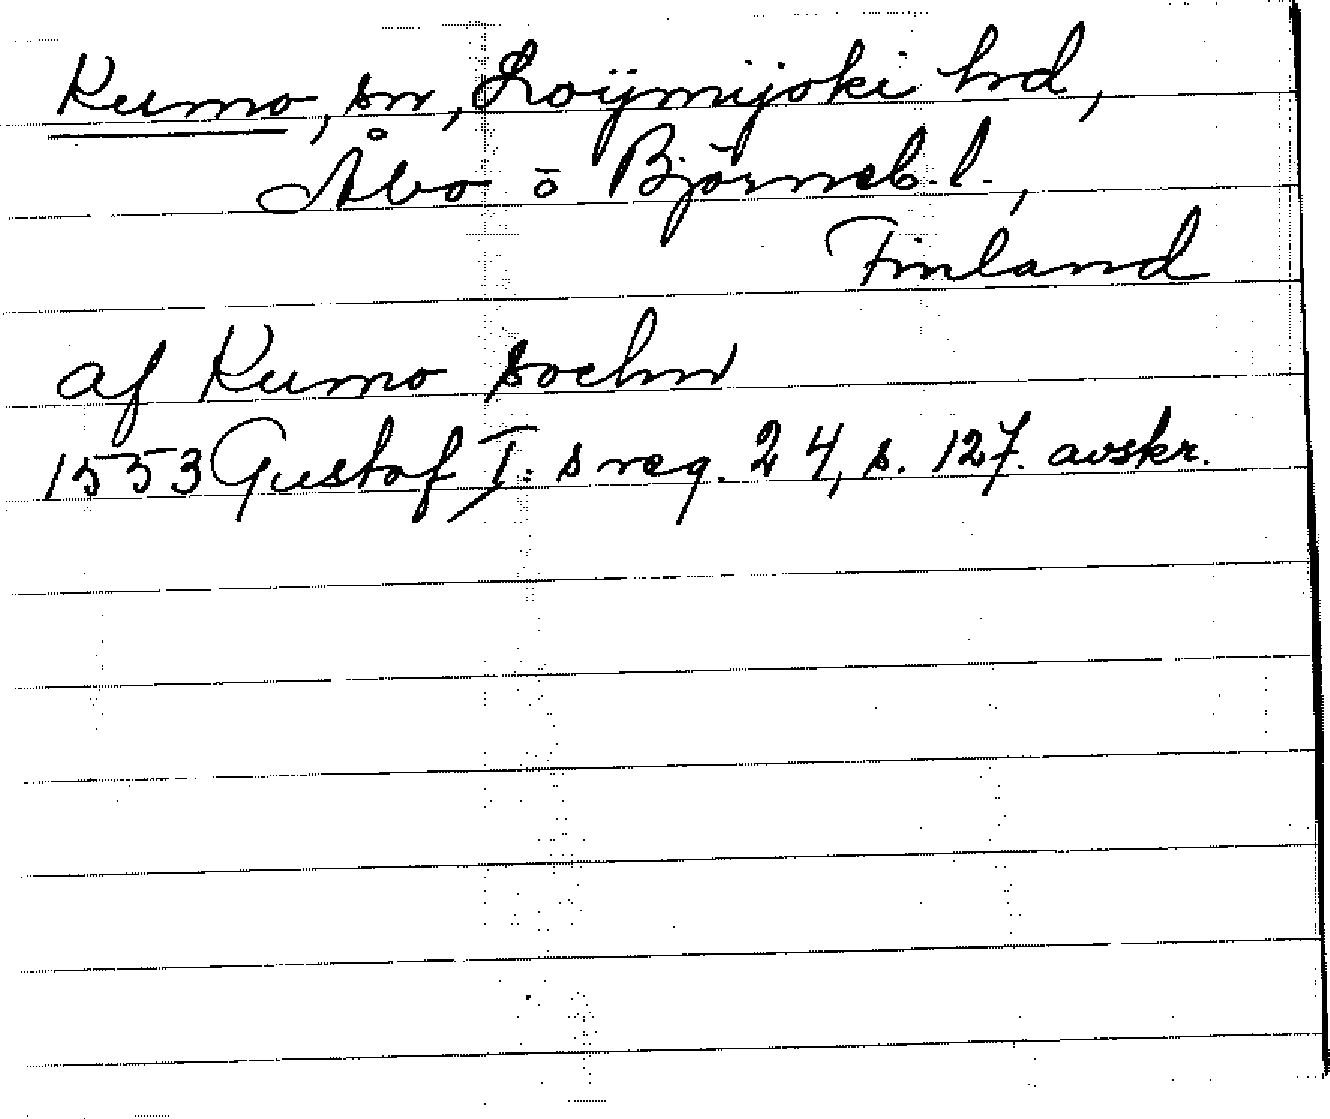 Kumo, sn, Loijmijoki hd,
Åbo o Björneb. l.,
Finland
af Kumo sochn
1553 Gustaf I:s reg. 24, s. 127. avskr.